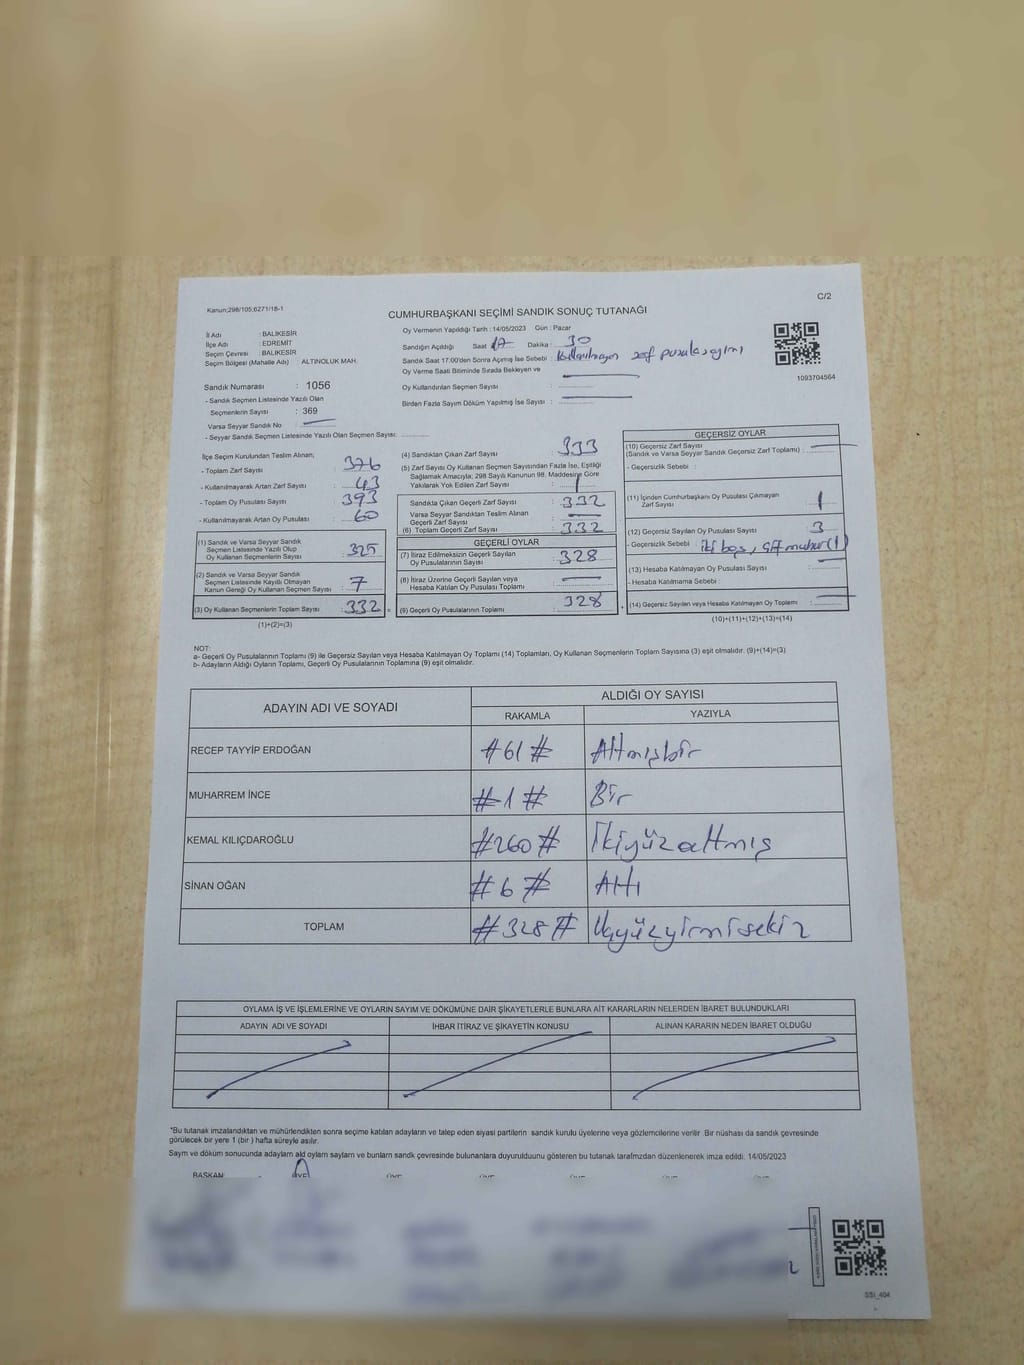 Kanun;298/105;6271/18-1
C/2
CUMHURBAŞKANI SEÇİMİ SANDIK SONUÇ TUTANAĞI
İl Adı : BALIKESİR
İlçe Adı : EDREMİT
Seçim Çevresi : BALIKESİR
Seçim Bölgesi (Mahalle Adı) : ALTINOLUK MAH.
Sandık Numarası : 1056
- Sandık Seçmen Listesinde Yazılı Olan
Seçmenlerin Sayısı : 369
Varsa Seyyar Sandık No :
- Seyyar Sandık Seçmen Listesinde Yazılı Olan Seçmen Sayısı:
Oy Vermenin Yapıldığı Tarih : 14/05/2023 Gün : Pazar
Sandığın Açıldığı Saat 17 Dakika : 30
Sandık Saat 17:00'den Sonra Açılmış İse Sebebi : Kullanılmayan zarf pusula sayımı
Oy Verme Saati Bitiminde Sırada Bekleyen ve
Oy Kullandırılan Seçmen Sayısı :
Birden Fazla Sayım Döküm Yapılmış İse Sayısı :
1093704564
İlçe Seçim Kurulundan Teslim Alınan;
- Toplam Zarf Sayısı : 376
- Kullanılmayarak Artan Zarf Sayısı : 43
- Toplam Oy Pusulası Sayısı : 393
- Kullanılmayarak Artan Oy Pusulası : 60
(1) Sandık ve Varsa Seyyar Sandık
Seçmen Listesinde Yazılı Olup
Oy Kullanan Seçmenlerin Sayısı : 325
(2) Sandık ve Varsa Seyyar Sandık
Seçmen Listesinde Kayıtlı Olmayan
Kanun Gereği Oy Kullanan Seçmen Sayısı : 7
(3) Oy Kullanan Seçmenlerin Toplam Sayısı : 332
(1)+(2)=(3)
(4) Sandıktan Çıkan Zarf Sayısı : 333
(5) Zarf Sayısı Oy Kullanan Seçmen Sayısından Fazla İse, Eşitliği
Sağlamak Amacıyla; 298 Sayılı Kanunun 98. Maddesine Göre
Yakılarak Yok Edilen Zarf Sayısı : 1
Sandıkta Çıkan Geçerli Zarf Sayısı : 332
Varsa Seyyar Sandıktan Teslim Alınan
Geçerli Zarf Sayısı :
(6) Toplam Geçerli Zarf Sayısı : 332
GEÇERLİ OYLAR
(7) İtiraz Edilmeksizin Geçerli Sayılan
Oy Pusulasının Sayısı : 328
(8) İtiraz Üzerine Geçerli Sayılan veya
Hesaba Katılan Oy Pusulası Toplamı :
(9) Geçerli Oy Pusulalarının Toplamı : 328
GEÇERSİZ OYLAR
(10) Geçersiz Zarf Sayısı
(Sandık ve Varsa Seyyar Sandık Geçersiz Zarf Toplamı) :
- Geçersizlik Sebebi :
(11) İçinden Cumhurbaşkanı Oy Pusulası Çıkmayan
Zarf Sayısı : 1
(12) Geçersiz Sayılan Oy Pusulası Sayısı : 3
- Geçersizlik Sebebi : iki boş, çift mühür (1)
(13) Hesaba Katılmayan Oy Pusulası Sayısı :
- Hesaba Katılmama Sebebi :
(14) Geçersiz Sayılan veya Hesaba Katılmayan Oy Toplamı :
(10)+(11)+(12)+(13)=(14)
NOT:
a- Geçerli Oy Pusulalarının Toplamı (9) ile Geçersiz Sayılan veya Hesaba Katılmayan Oy Toplamı (14) Toplamları, Oy Kullanan Seçmenlerin Toplam Sayısına (3) eşit olmalıdır. (9)+(14)=(3)
b- Adayların Aldığı Oyların Toplamı, Geçerli Oy Pusulalarının Toplamına (9) eşit olmalıdır.
ADAYIN ADI VE SOYADI
ALDIĞI OY SAYISI
RAKAMLA YAZIYLA
RECEP TAYYİP ERDOĞAN #61# Altmışbir
MUHARREM İNCE #1# Bir
KEMAL KILIÇDAROĞLU #260# İkiyüzaltmış
SİNAN OĞAN #6# Altı
TOPLAM #328# Üçyüzyirmisekiz
OYLAMA İŞ VE İŞLEMLERİNE VE OYLARIN SAYIM VE DÖKÜMÜNE DAİR ŞİKAYETLERLE BUNLARA AİT KARARLARIN NELERDEN İBARET BULUNDUKLARI
ADAYIN ADI VE SOYADI İHBAR İTİRAZ VE ŞİKAYETİN KONUSU ALINAN KARARIN NEDEN İBARET OLDUĞU
*Bu tutanak imzalandıktan ve mühürlendikten sonra seçime katılan adayların ve talep eden siyasi partilerin sandık kurulu üyelerine veya gözlemcilerine verilir. Bir nüshası da sandık çevresinde
görülecek bir yere 1 (bir ) hafta süreyle asılır.
Sayım ve döküm sonucunda adayların ald oyların sayıları ve bunların sandk çevresinde bulunanlara duyurulduunu gösteren bu tutanak tarafmzdan düzenlenerek imza edildi. 14/05/2023
BAŞKAN ÜYE ÜYE ÜYE ÜYE ÜYE
SSI_404